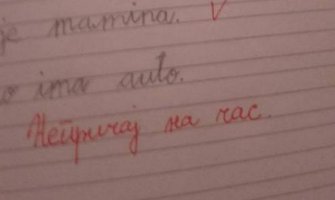 je mamina.
o ima auto.
Непричај на час.